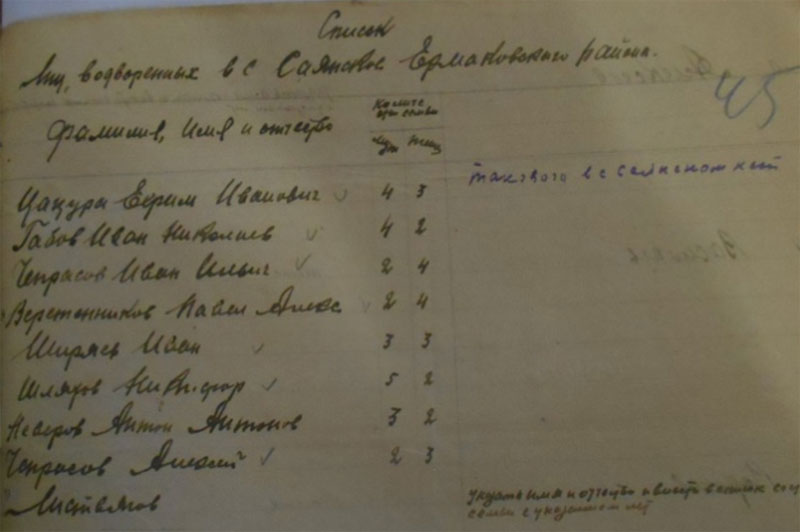 Список
Лиц, водворенных в с Саянское Ермаковского района.
45
Фамилия, Имя и отчество
Колич.
семьи
муж жен
такового в с Саянском нет
Цацура Ефрим Иванович 4 3
Габов Иван Николаев 4 2
Чепрасов Иван Ильич 2 4
Веретенников Павел Алекс 2 4
Ширяев Иван 3 3
Шляхов Никифор 5 2
Неверов Антон Антонов 3 2
Чепрасов Алексей 2 3
Листвягов
указать имя и отчество и внести в список сос
семьи с указанием лет